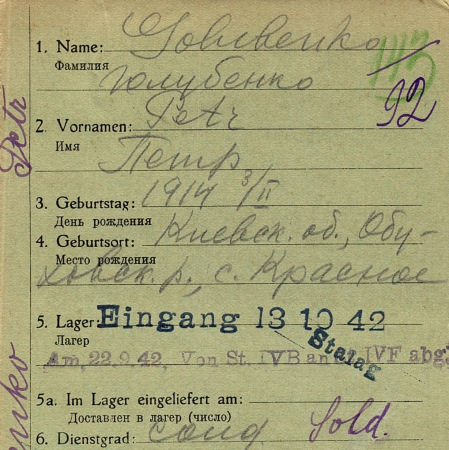 1. Name: Golubenko
Фамилия
Голубенко
92
2. Vornamen: Petr
Имя
Петр
3. Geburtstag: 1914 3/II
День рождения
4. Geburtsort: Киевск. об., Обу-
Место рождения
ховск. р., с. Красное
5. Lager: Eingang 13 10 42
Лагер
Stalag
Am 22.9.42, Von St. IVB an IVF abg
5a. Im Lager eingeliefert am:
Доставлен в лагер (число)
6. Dienstgrad: солд Sold.
Petr
enko